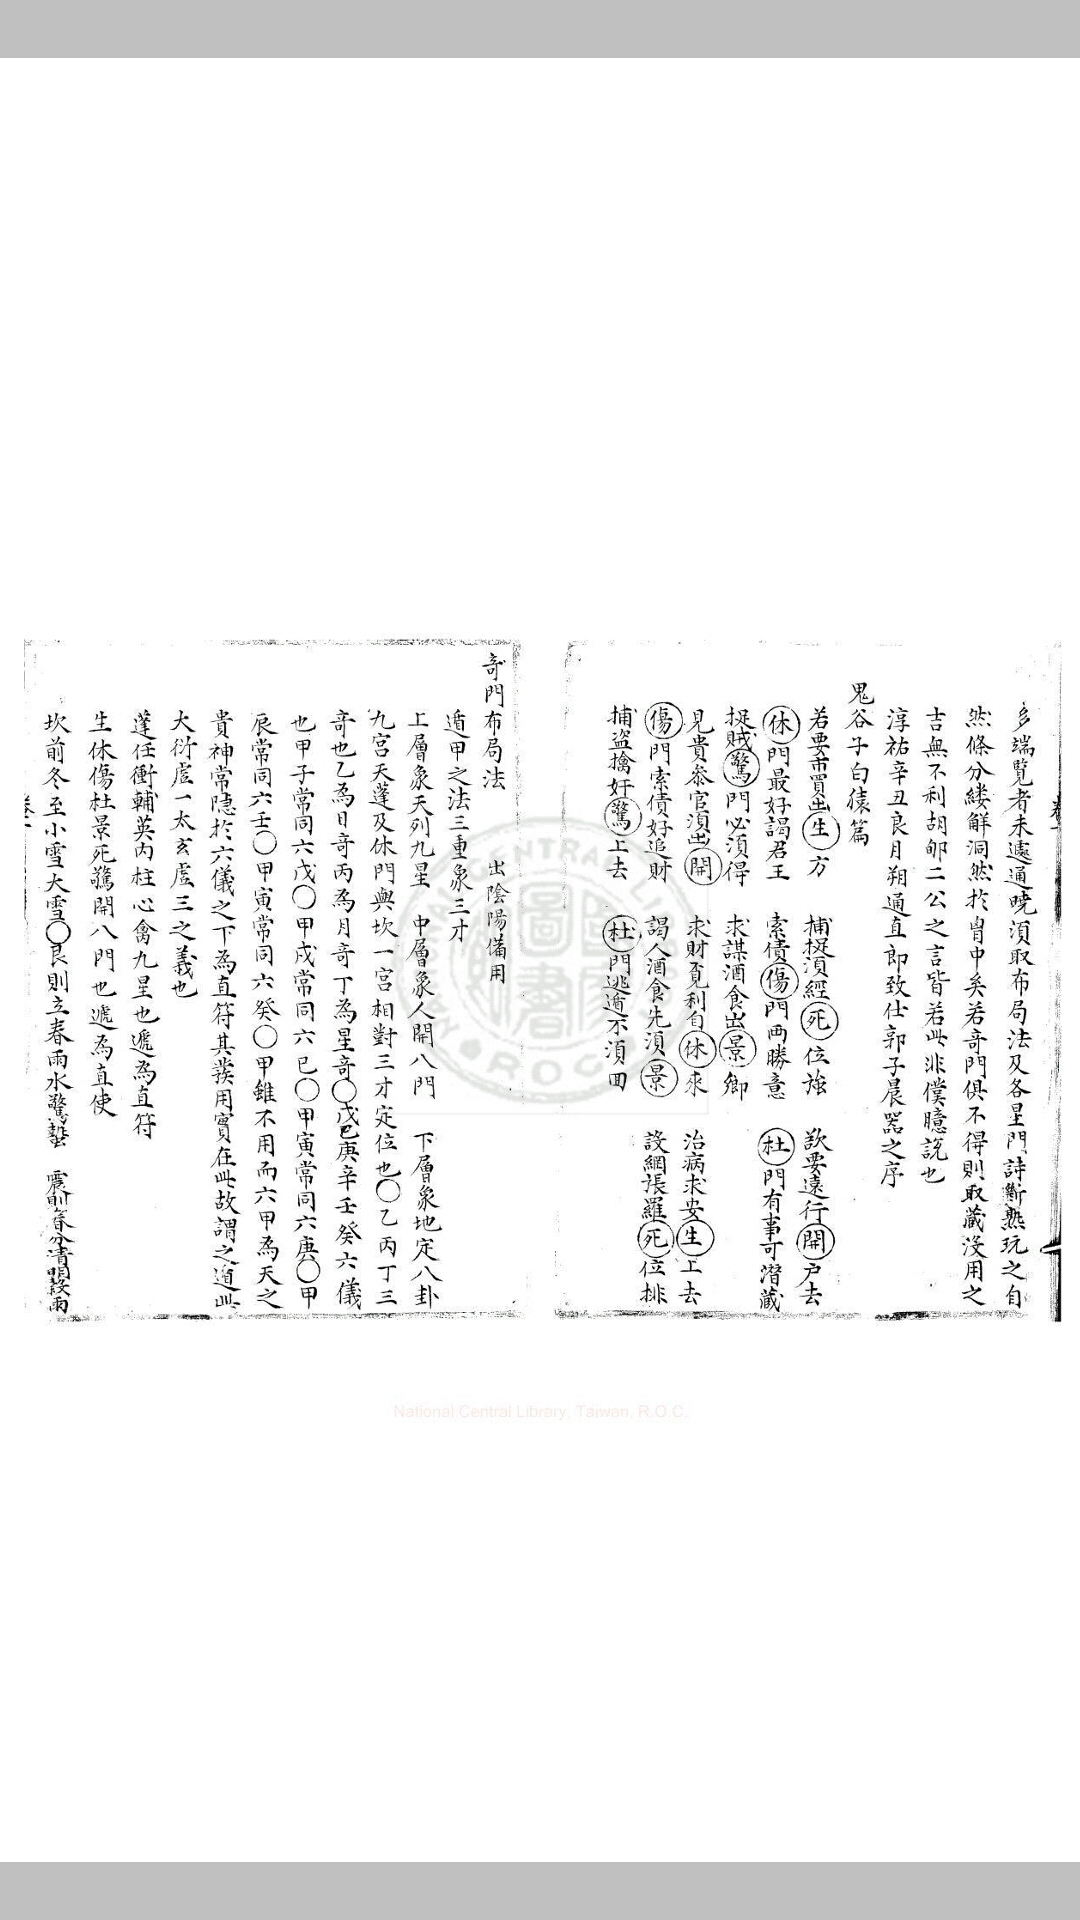 多端覽者未遽通曉須取布局法及各星門詩斷熟玩之自
然條分縷解洞然於胷中矣若奇門俱不得則取藏沒用之
吉無不利胡郇二公之言皆若此非僕臆說也
淳祐辛丑良月朔通直郎致仕郭子晟噐之序
鬼谷子白猿篇
若要市買出生方 捕捉須經死位強 欲要遠行開户去
休門最好謁君王 索債傷門両勝意 杜門有事可潛藏
捉賊驚門必須得 求謀酒食出景鄉
見貴叅官須出開 求財覓利自休来 治病求安生上去
傷門索債好追財 謁人酒食先須景 設網張羅死位排
捕盗擒奸驚上去 杜門逃遁不須回
奇門布局法 出陰陽備用
遁甲之法三重象三才
上層象天列九星 中層象人開八門 下層象地定八卦
九宫天蓬及休門與坎一宫相對三才定位也〇乙丙丁三
奇也乙為日奇丙為月奇丁為星奇〇戊己庚辛壬癸六儀
也甲子常同六戊〇甲戌常同六己〇甲寅常同六庚〇甲
辰常同六壬〇甲寅常同六癸〇甲雖不用而六甲為天之
貴神常隠於六儀之下為直符其發用實在此故謂之遁此
大衍虗一太玄虗三之義也
蓬任衝輔英内柱心禽九星也遞為直符
生休傷杜景死驚開八門也遞為直使
坎前冬至小雪大雪〇艮則立春雨水驚蟄 震前春分清明穀雨
National Central Library, Taiwan, R.O.C.